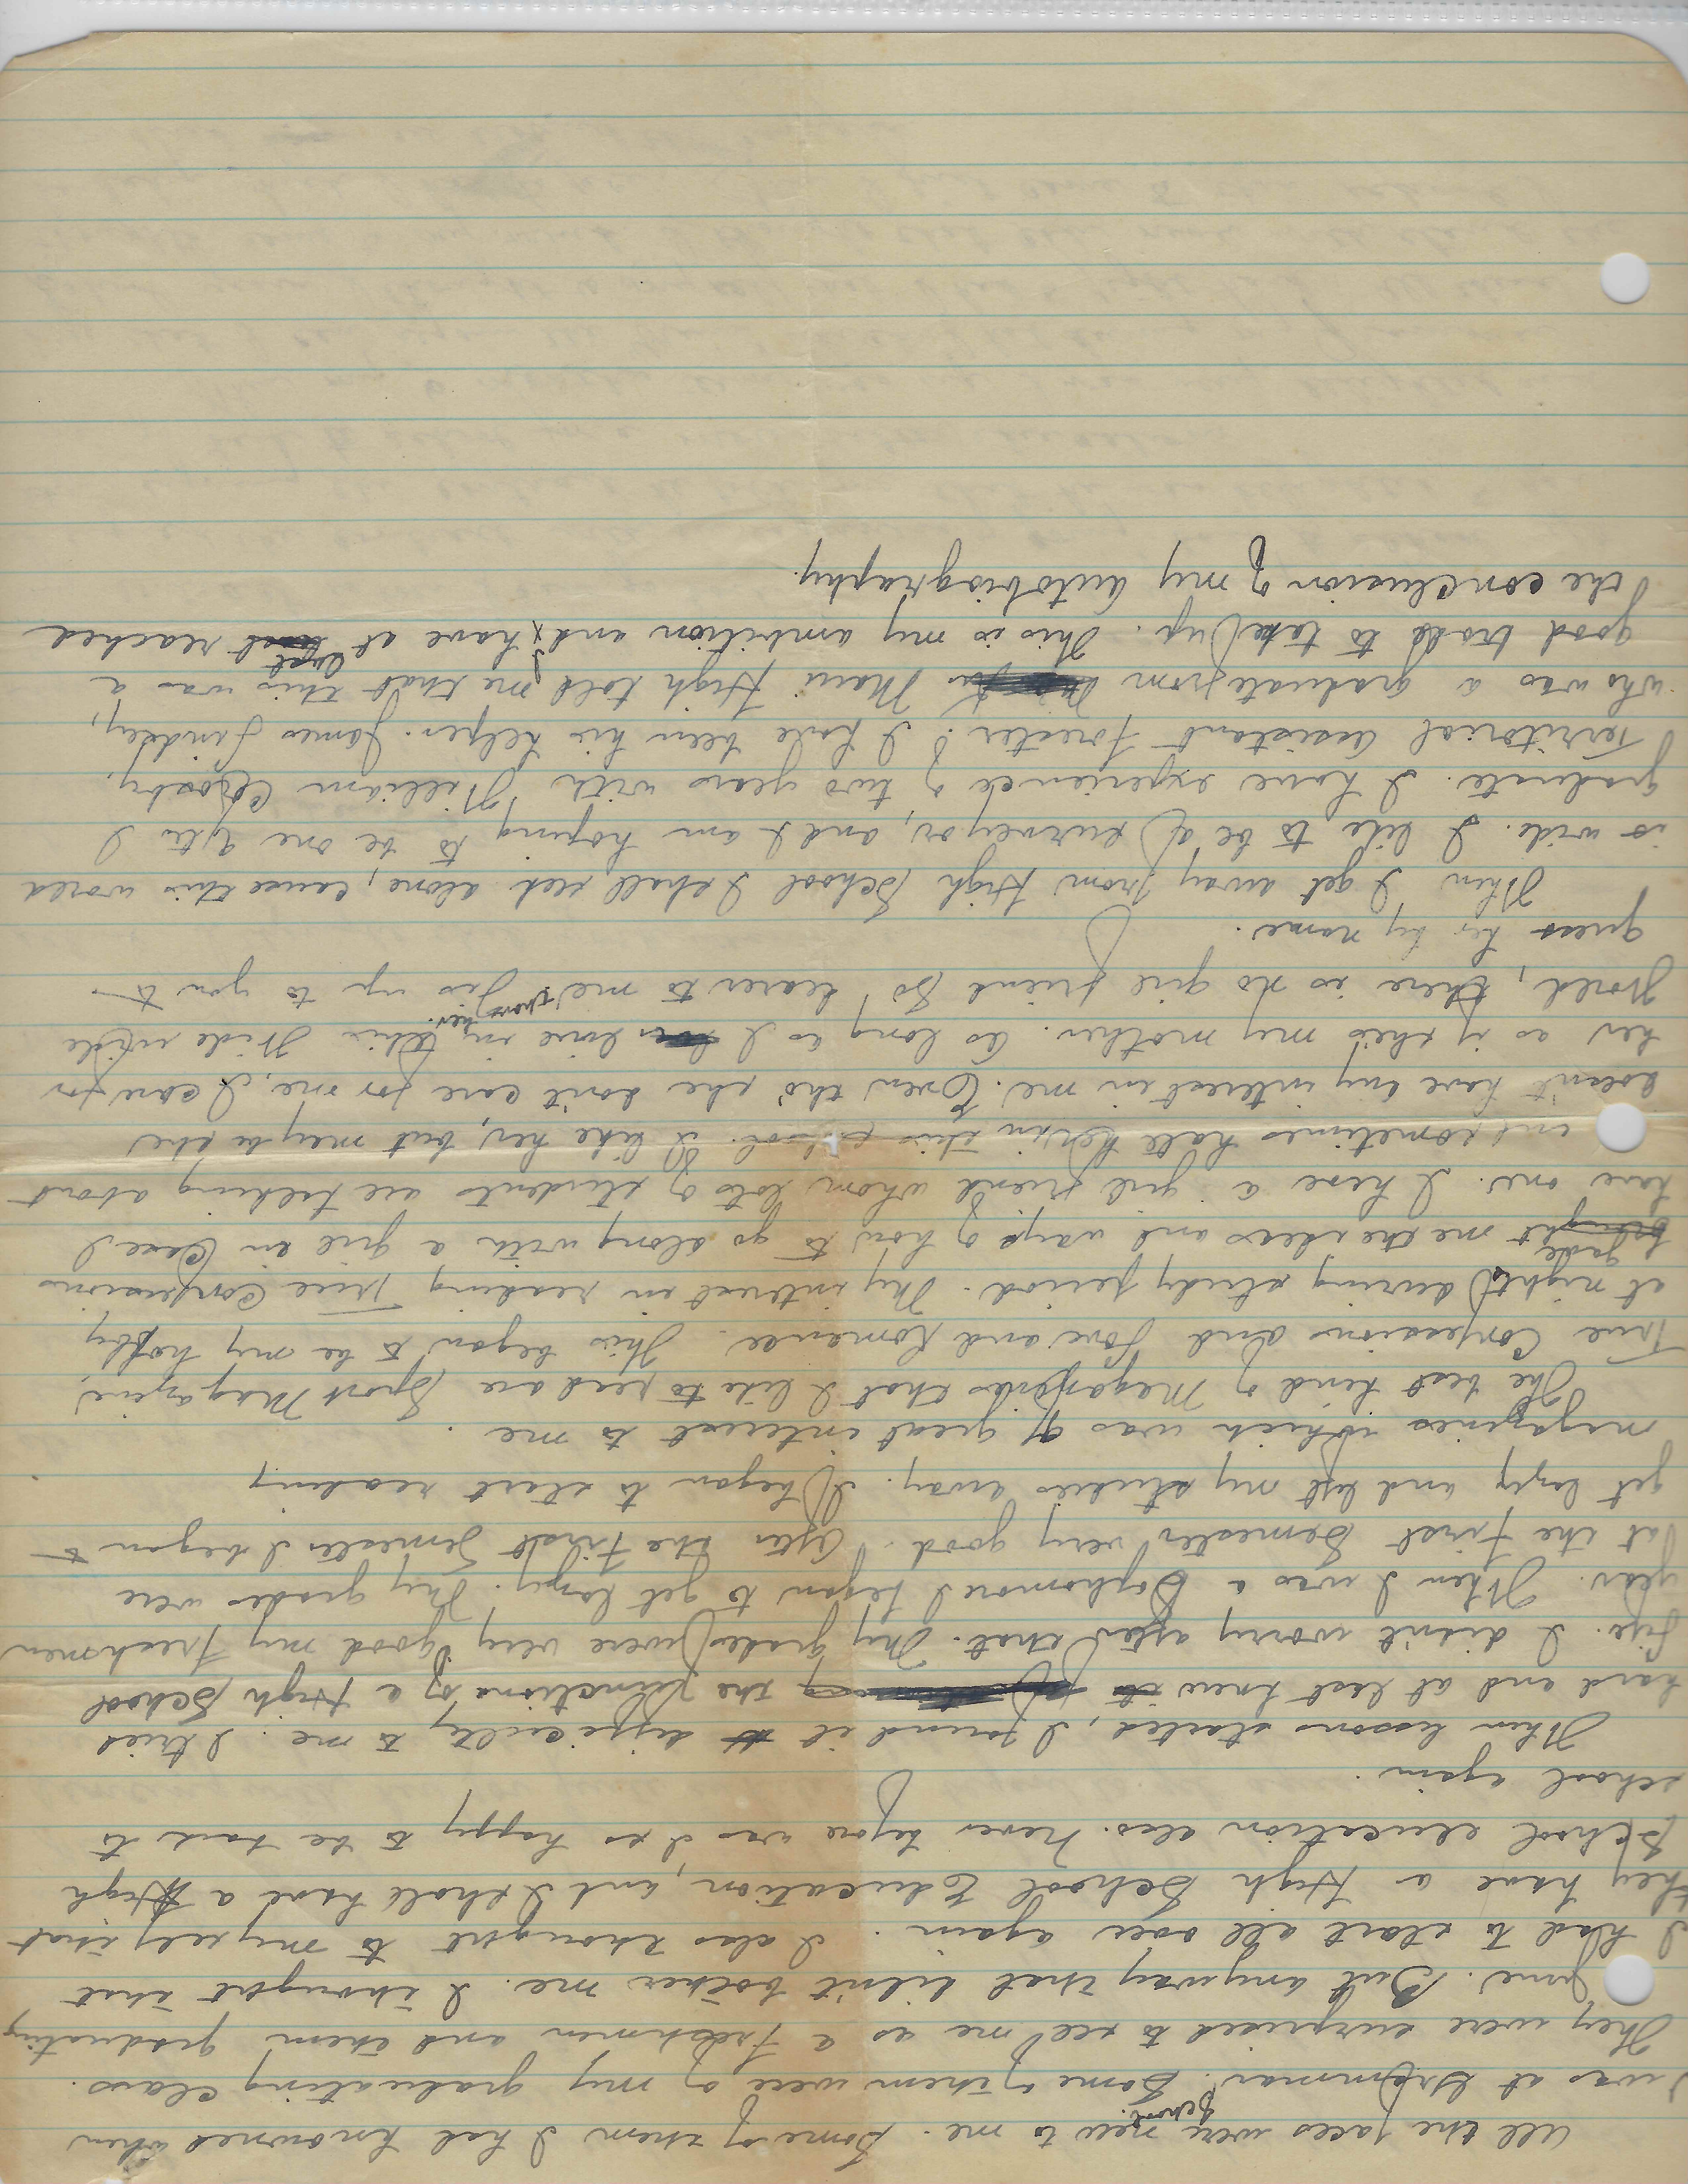 All the faces were new to me. Some of them I had knowned when
I was at Grammar School. Some of them were of my graduating class.
They were surprised to see me as a Freshmen and them graduating
June. But anyway that didn't bother me. I thought that
I had to start all over again. I also thought to myself that
they have a High School Education, and I shall have a High
School education also. Never before was I so happy to be back to
school again.
When lessons started, I found it difficulty to me. I tried
hard and at last knew the functions of a High School
life. I didn't worry after that. My grades were very good my Freshmen
year. When I was a Sophomore I began to get lazy. My grades were
at the first Semester very good. After the first Semester I began to
get lazy and left my studies away. I began to start reading
magazines which was of great interest to me.
The best kind of Magazines that I like to read are Sport Magazine,
True Confessions and Love and Romance. This began to be my hobby
at nights during study period. My interest in reading True Confessions
gave me the ideas and ways of how to go along with a girl in Case I
have one. I have a girl friend whom lots of students are talking about
and sometimes hate her in this school. I like her, but may be she
doesn't have any interest in me. Even tho' she don't care for me, I care for
her as if she's my mother. As long as I live in this Wide wide
World, there is no girl friend so dearer to me than her. Its up to you to
guess her by name.
When I get away from High School I shall seek alone, cause this world
is wide. I like to be a surveyor, and I am hoping to be one after I
graduate. I have experience of two years with William Crosby,
Territorial Assistant Forester. I have been his helper. James Lindsey,
who was a graduate from Maui High told me that this was a
good trade to take up. This is my ambition and I have at last reached
the conclusion of my autobiography.